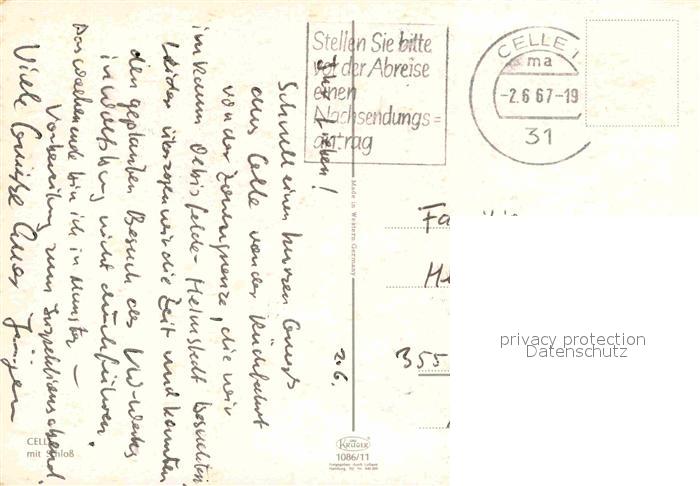 Stellen Sie bitte
vor der Abreise
einen
Nachsendungs=
antrag
CELLE 1
ma
-2.6 67-19
31
2.6.
Ihr Lieben!
Schnell einen kurzen Gruß
aus Celle von der Rückfahrt
von der Zonengrenze, die wir
im Raum Oebisfelde-Helmstedt besuchten
Leider überzogen wir die Zeit und konnten
den geplanten Besuch des VW-Werks
in Wolfsburg nicht durchführen.
Das Wochenende bin ich in Munster –
Vorbereitung zum Inspektionsabend.
Viele Grüße Euer Jürgen
Made in Western Germany
Fa
355
CELLE
mit Schloß
KRÜGER
1086/11
privacy protection
Datenschutz